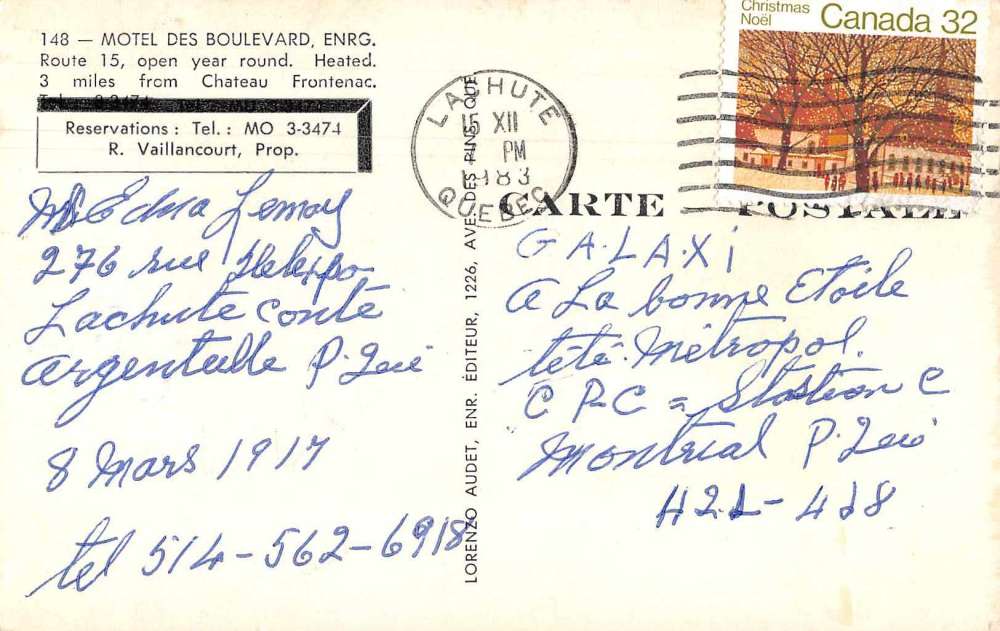 148 — MOTEL DES BOULEVARD, ENRG.
Route 15, open year round. Heated.
3 miles from Chateau Frontenac.
Reservations : Tel. : MO 3-3474
R. Vaillancourt, Prop.
Edna Lemay
276 rue
Lachute Conté
Argenteulle P. Qué
8 Mars 1917
tel 514-562-6918
LORENZO AUDET, ENR. ÉDITEUR, 1226, AVE. DES PINS, QUE
LACHUTE
15 XII
PM
1983
QUEBEC
Christmas
Noël
Canada 32
CARTE POSTALE
GA.LA.Xi
a La bonne Etoile
télé. Métropol.
C P.C = Station C
Montréal P. Qué
H2L-4J8